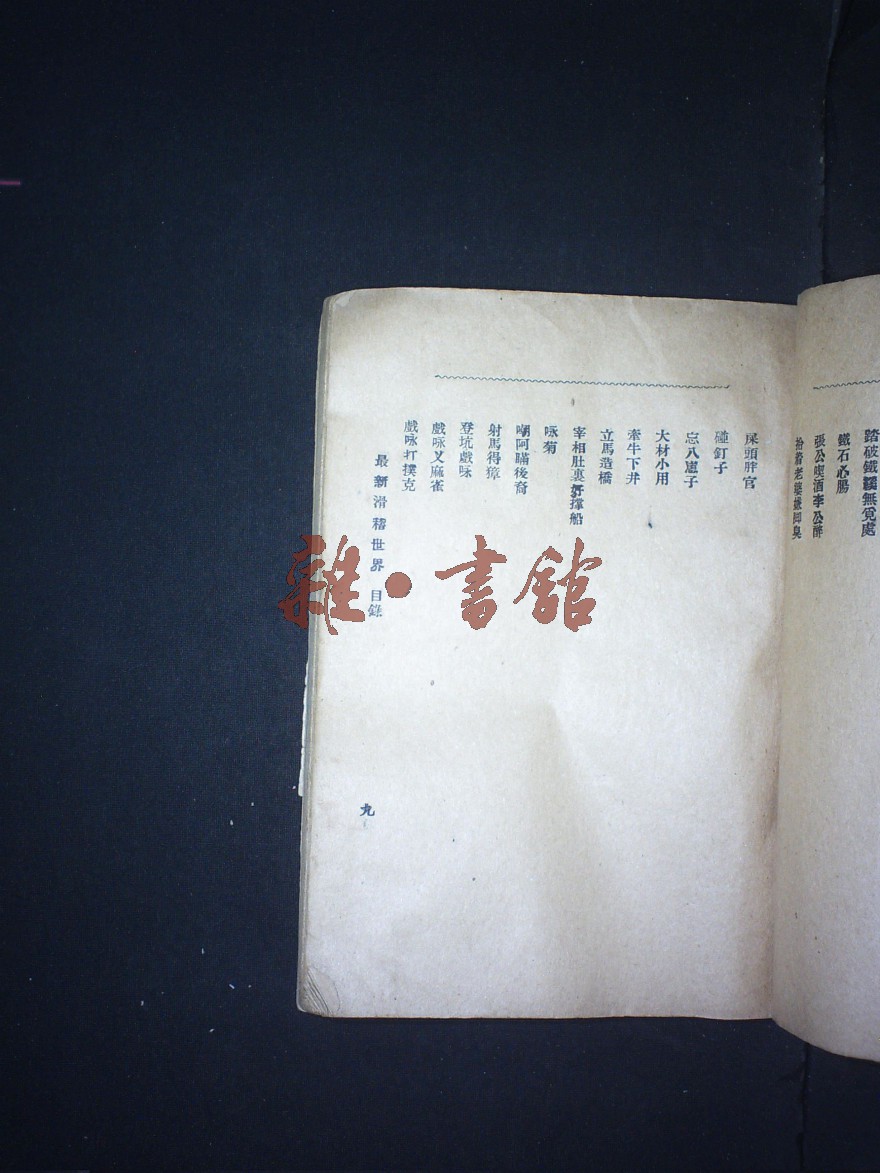 踏破鐵鞋無覓處
鐵石心腸
張公喫酒李公醉
屎頭胖官
碰釘子
忘八兎子
大材小用
牽牛下井
立馬造橋
宰相肚裏好撑船
咏菊
嘲阿瞞後裔
射馬得獐
登坑戲咏
戲咏叉麻雀
戲咏打撲克
最新滑稽世界 目錄
九
雜·書館